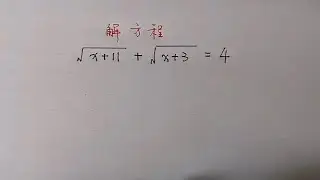 解方程
√(x+11) + √(x+3) = 4